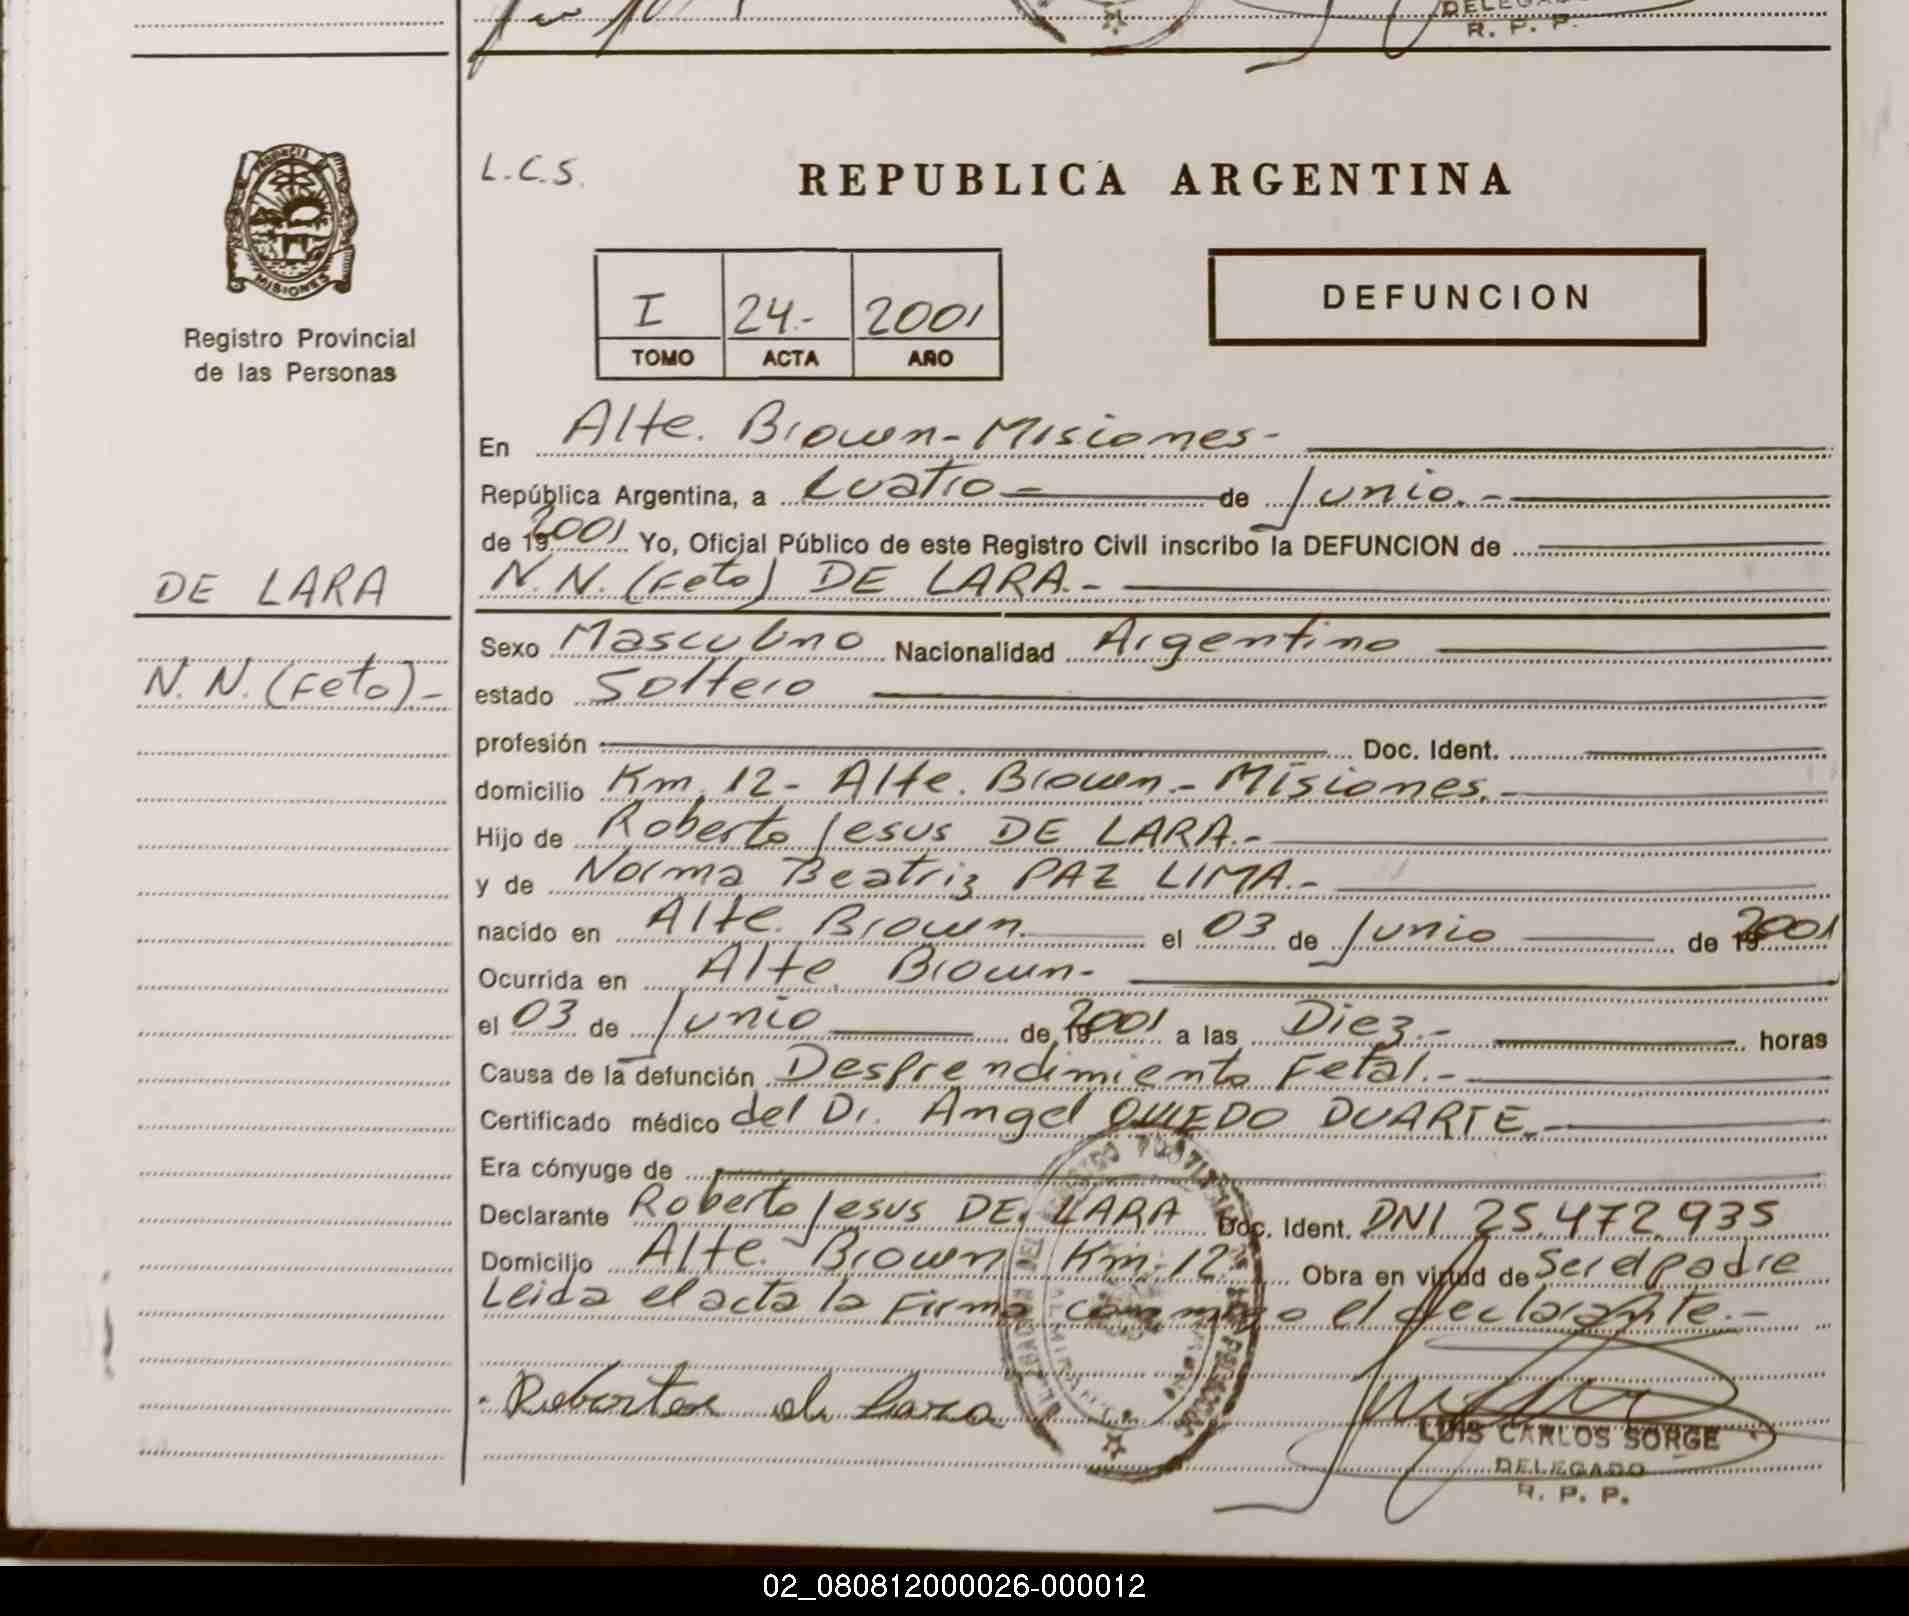 DELEGADO
R. P. P.
PROVINCIA
MISIONES
L.C.S.
REPUBLICA ARGENTINA
I 24.- 2001
TOMO ACTA AÑO
DEFUNCION
Registro Provincial
de las Personas
En Alte. Brown - Misiones -
República Argentina, a Cuatro - de Junio. -
de 19 2001 Yo, Oficial Público de este Registro Civil inscribo la DEFUNCION de
DE LARA
N.N. (Feto) DE LARA. -
Sexo Masculino Nacionalidad Argentino
N. N. (Feto) -
estado Soltero
profesión Doc. Ident.
domicilio Km. 12 - Alte. Brown. - Misiones. -
Hijo de Roberto Jesus DE LARA. -
y de Norma Beatriz PAZ LIMA. -
nacido en Alte. Brown. el 03 de Junio de 19 2001
Ocurrida en Alte. Brown -
el 03 de Junio de 19 2001 a las Diez. - horas
Causa de la defunción Desprendimiento Fetal. -
Certificado médico del Dr. Angel OVIEDO DUARTE. -
Era cónyuge de
Declarante Roberto Jesus DE LARA Doc. Ident. DNI 25.472.935
Domicilio Alte. Brown Km. 12. Obra en virtud de Ser el padre
Leida el acta la Firma conmigo el declarante. -
Roberto de Lara
LUIS CARLOS SORGE
DELEGADO
R. P. P.
02_080812000026-000012